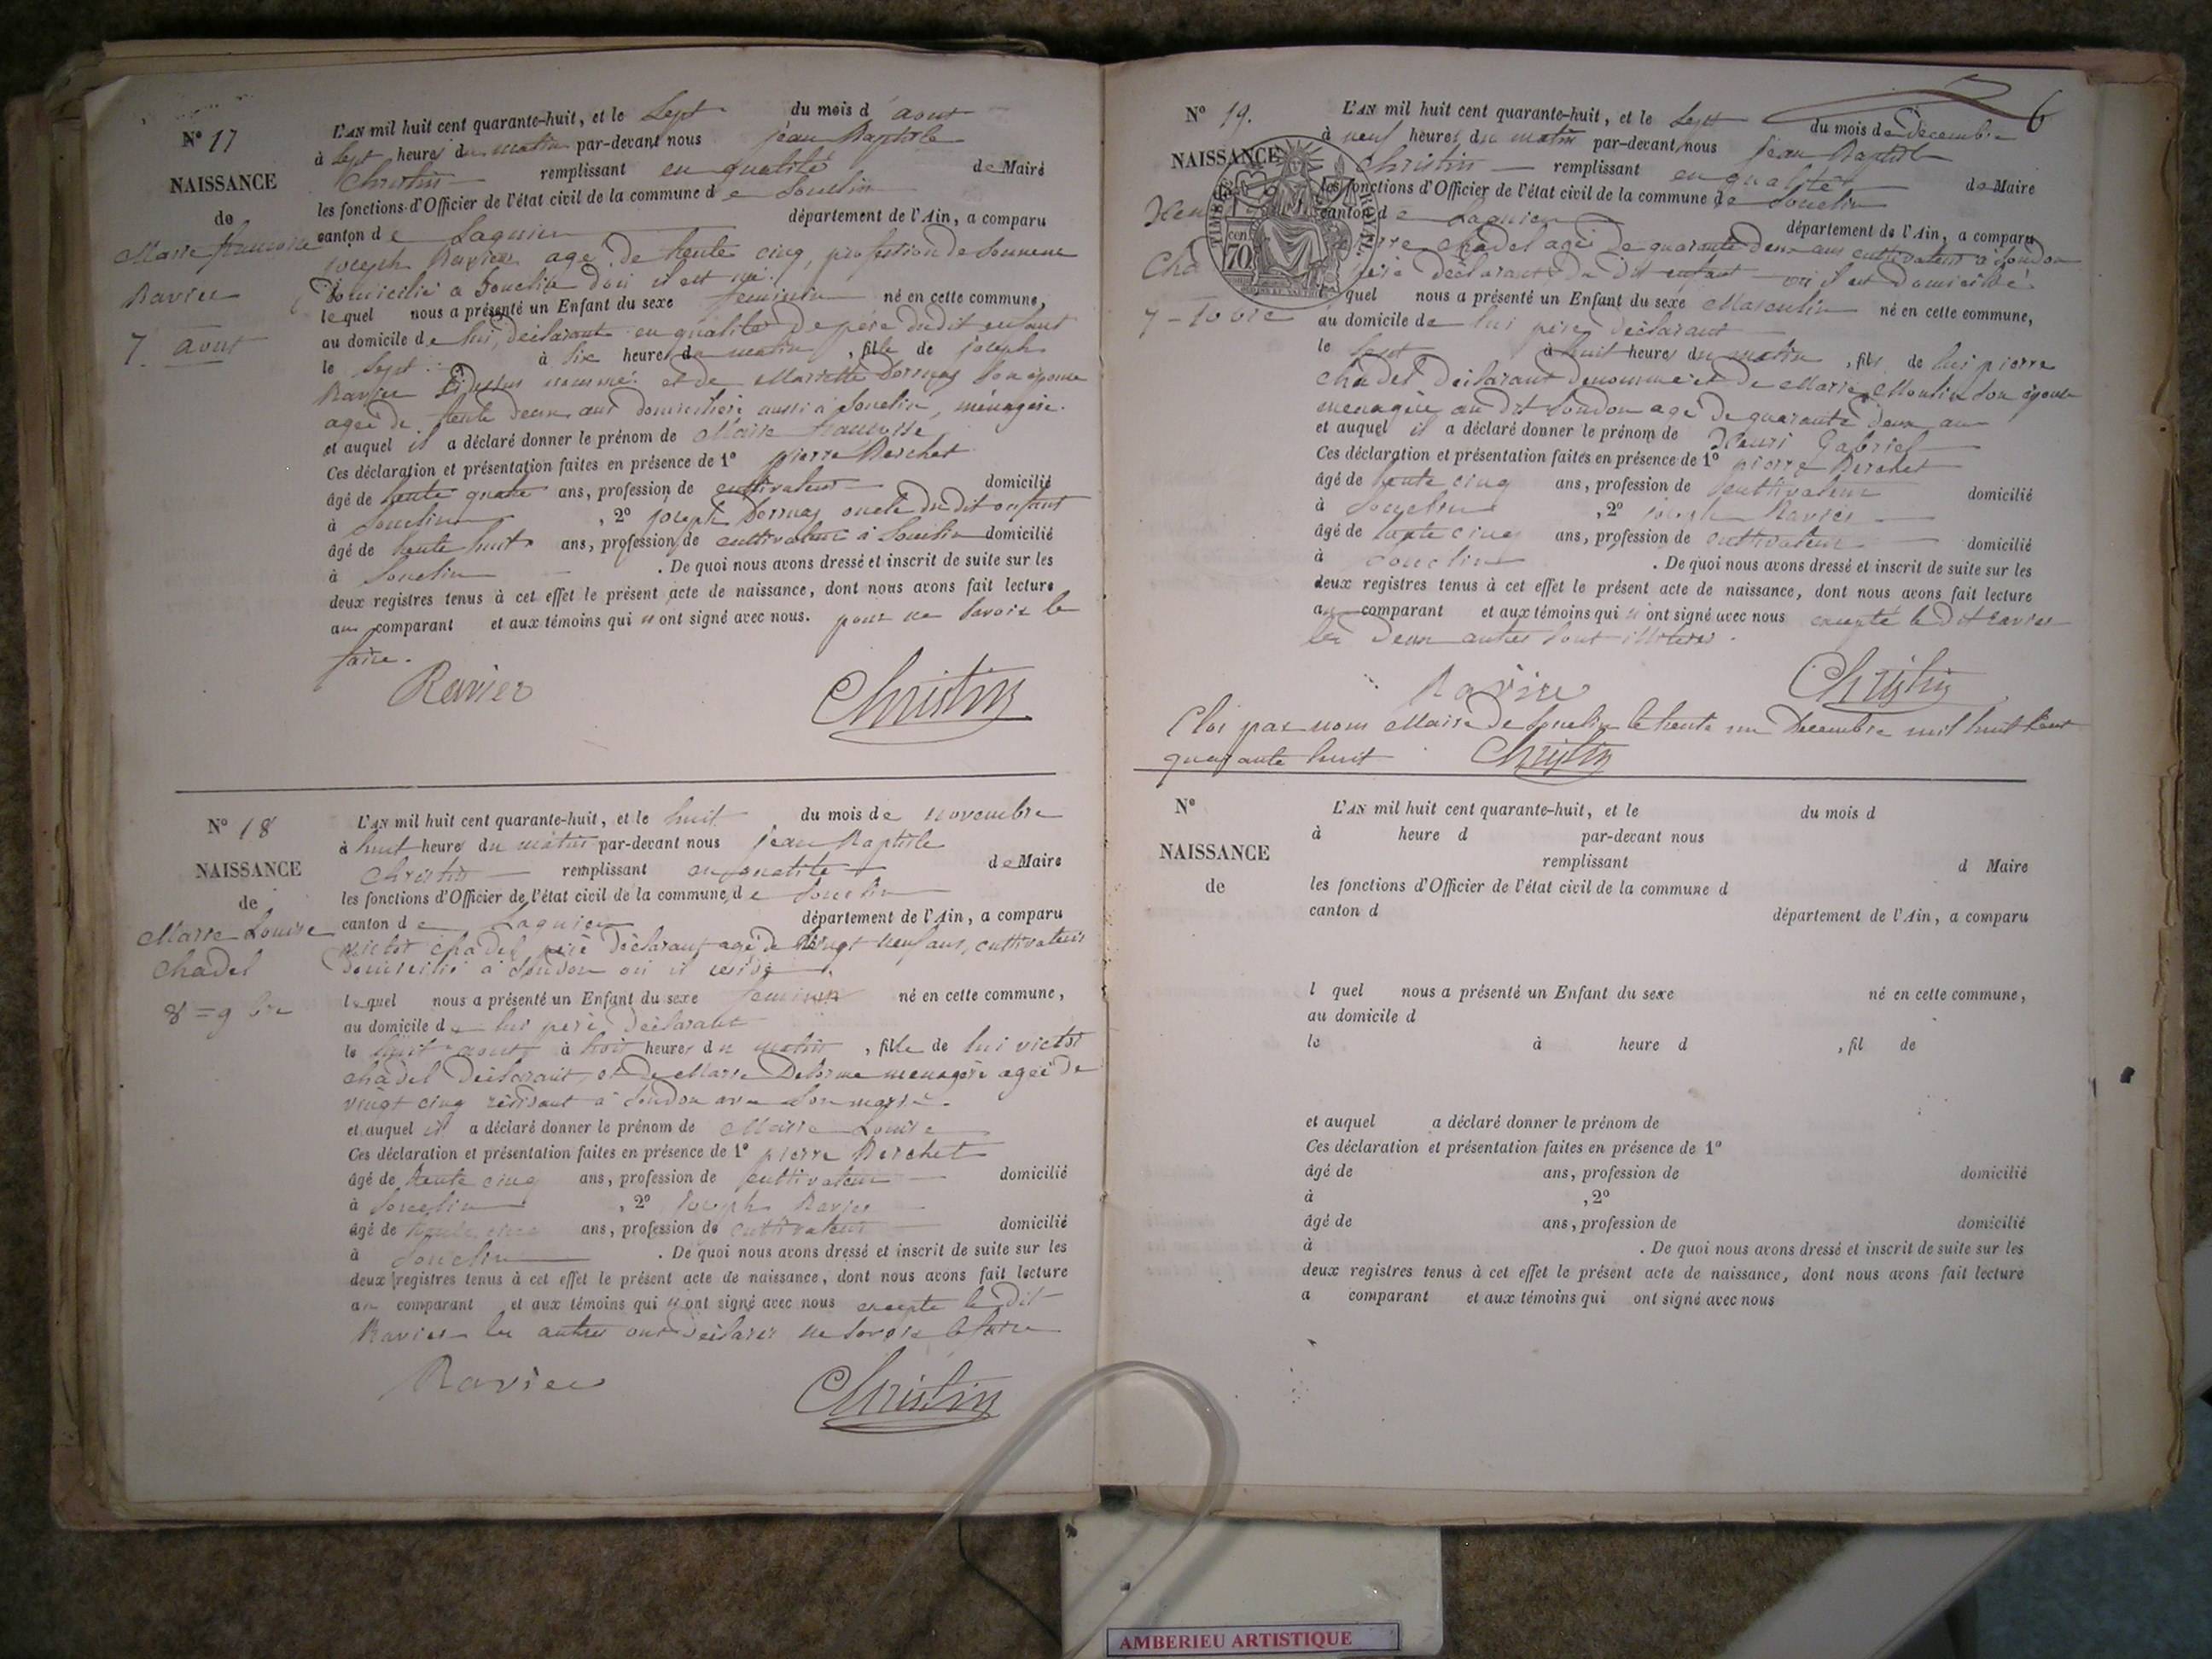 N° 17
NAISSANCE
de
Marie francoise
Ravier
7. aout
L'AN mil huit cent quarante-huit, et le Sept du mois d'aout
à Sept heures du matin par-devant nous jean Baptiste
Christin remplissant en qualité de Maire
les fonctions d'Officier de l'état civil de la commune de Souclin
canton de Lagnieu département de l'Ain, a comparu
joseph Ravier agé de trente cinq, profession de
domicilié a Souclin dou il est né.
lequel nous a présenté un Enfant du sexe feminin né en cette commune,
au domicile de lui, declarant en qualité de père dudit enfant
le Sept à Six heures du matin, fille de joseph
Ravier et de son épouse
agée de trente deux ans domiciliée aussi a Souclin, ménagère.
et auquel il a déclaré donner le prénom de Marie francoise
Ces déclaration et présentation faites en présence de 1° pierre Berchet
âgé de trente quatre ans, profession de cultivateur domicilié
à Souclin, 2° joseph oncle dudit enfant
âgé de trente huit ans, profession de cultivateur à Souclin domicilié
à Souclin. De quoi nous avons dressé et inscrit de suite sur les
deux registres tenus à cet effet le présent acte de naissance, dont nous avons fait lecture
au comparant et aux témoins qui n'ont signé avec nous. pour ne savoir le
faire.
Ravier Christin
N° 18
NAISSANCE
de
Marie Louise
Chadel
8 = 9 bre
L'AN mil huit cent quarante-huit, et le huit du mois de novembre
à huit heures du matin par-devant nous jean Baptiste
Christin remplissant en qualité de Maire
les fonctions d'Officier de l'état civil de la commune de Souclin
canton de Lagnieu département de l'Ain, a comparu
victor chadel père déclarant agé de vingt neuf ans, cultivateur
domicilié a Soudon où il reside
lequel nous a présenté un Enfant du sexe feminin né en cette commune,
au domicile de lui père déclarant
le huit à trois heures du matin, fille de lui victor
chadel déclarant, et de Marie Delorme menagère agée de
vingt cinq résidant a Soudon avec son
et auquel il a déclaré donner le prénom de Marie Louise
Ces déclaration et présentation faites en présence de 1° pierre Berchet
âgé de trente cinq ans, profession de cultivateur domicilié
à Souclin, 2° joseph Ravier
âgé de trente cinq ans, profession de cultivateur domicilié
à Souclin. De quoi nous avons dressé et inscrit de suite sur les
deux registres tenus à cet effet le présent acte de naissance, dont nous avons fait lecture
au comparant et aux témoins qui n'ont signé avec nous excepte le dit
Ravier les autres ont déclarer ne savoir le faire
Ravier Christin
6
N° 19.
NAISSANCE
TIMBRE ROYAL
70 cen
7 - 10 bre
L'AN mil huit cent quarante-huit, et le Sept du mois de décembre
à neuf heures du matin par-devant nous jean Baptiste
Christin remplissant en qualité de Maire
les fonctions d'Officier de l'état civil de la commune de Souclin
canton de Lagnieu département de l'Ain, a comparu
chadel agé de quarante deux ans cultivateur a Soudon
père déclarant du dit enfant où il est domicilié
quel nous a présenté un Enfant du sexe Masculin né en cette commune,
au domicile de lui père déclarant
le Sept à huit heures du matin, fils de lui pierre
chadel déclarant denommé et de Marie Moulin son épouse
menagère au dit Soudon agé de quarante deux ans
et auquel il a déclaré donner le prénom de Henri Gabriel
Ces déclaration et présentation faites en présence de 1° pierre Berchet
âgé de trente cinq ans, profession de cultivateur domicilié
à Souclin, 2° joseph Ravier
âgé de trente cinq ans, profession de cultivateur domicilié
à Souclin. De quoi nous avons dressé et inscrit de suite sur les
deux registres tenus à cet effet le présent acte de naissance, dont nous avons fait lecture
au comparant et aux témoins qui n'ont signé avec nous excepté le dit Ravier
les deux autres sont
Christin
Clos par nous Maire de Souclin le trente un Decembre mil huit Cent
quarante huit Christin
N°
NAISSANCE
de
L'AN mil huit cent quarante-huit, et le du mois d
à heure d par-devant nous
remplissant d Maire
les fonctions d'Officier de l'état civil de la commune d
canton d département de l'Ain, a comparu
l quel nous a présenté un Enfant du sexe né en cette commune,
au domicile d
le à heure d, fil de
et auquel a déclaré donner le prénom de
Ces déclaration et présentation faites en présence de 1°
âgé de ans, profession de domicilié
à, 2°
âgé de ans, profession de domicilié
à. De quoi nous avons dressé et inscrit de suite sur les
deux registres tenus à cet effet le présent acte de naissance, dont nous avons fait lecture
a comparant et aux témoins qui ont signé avec nous
AMBERIEU ARTISTIQUE